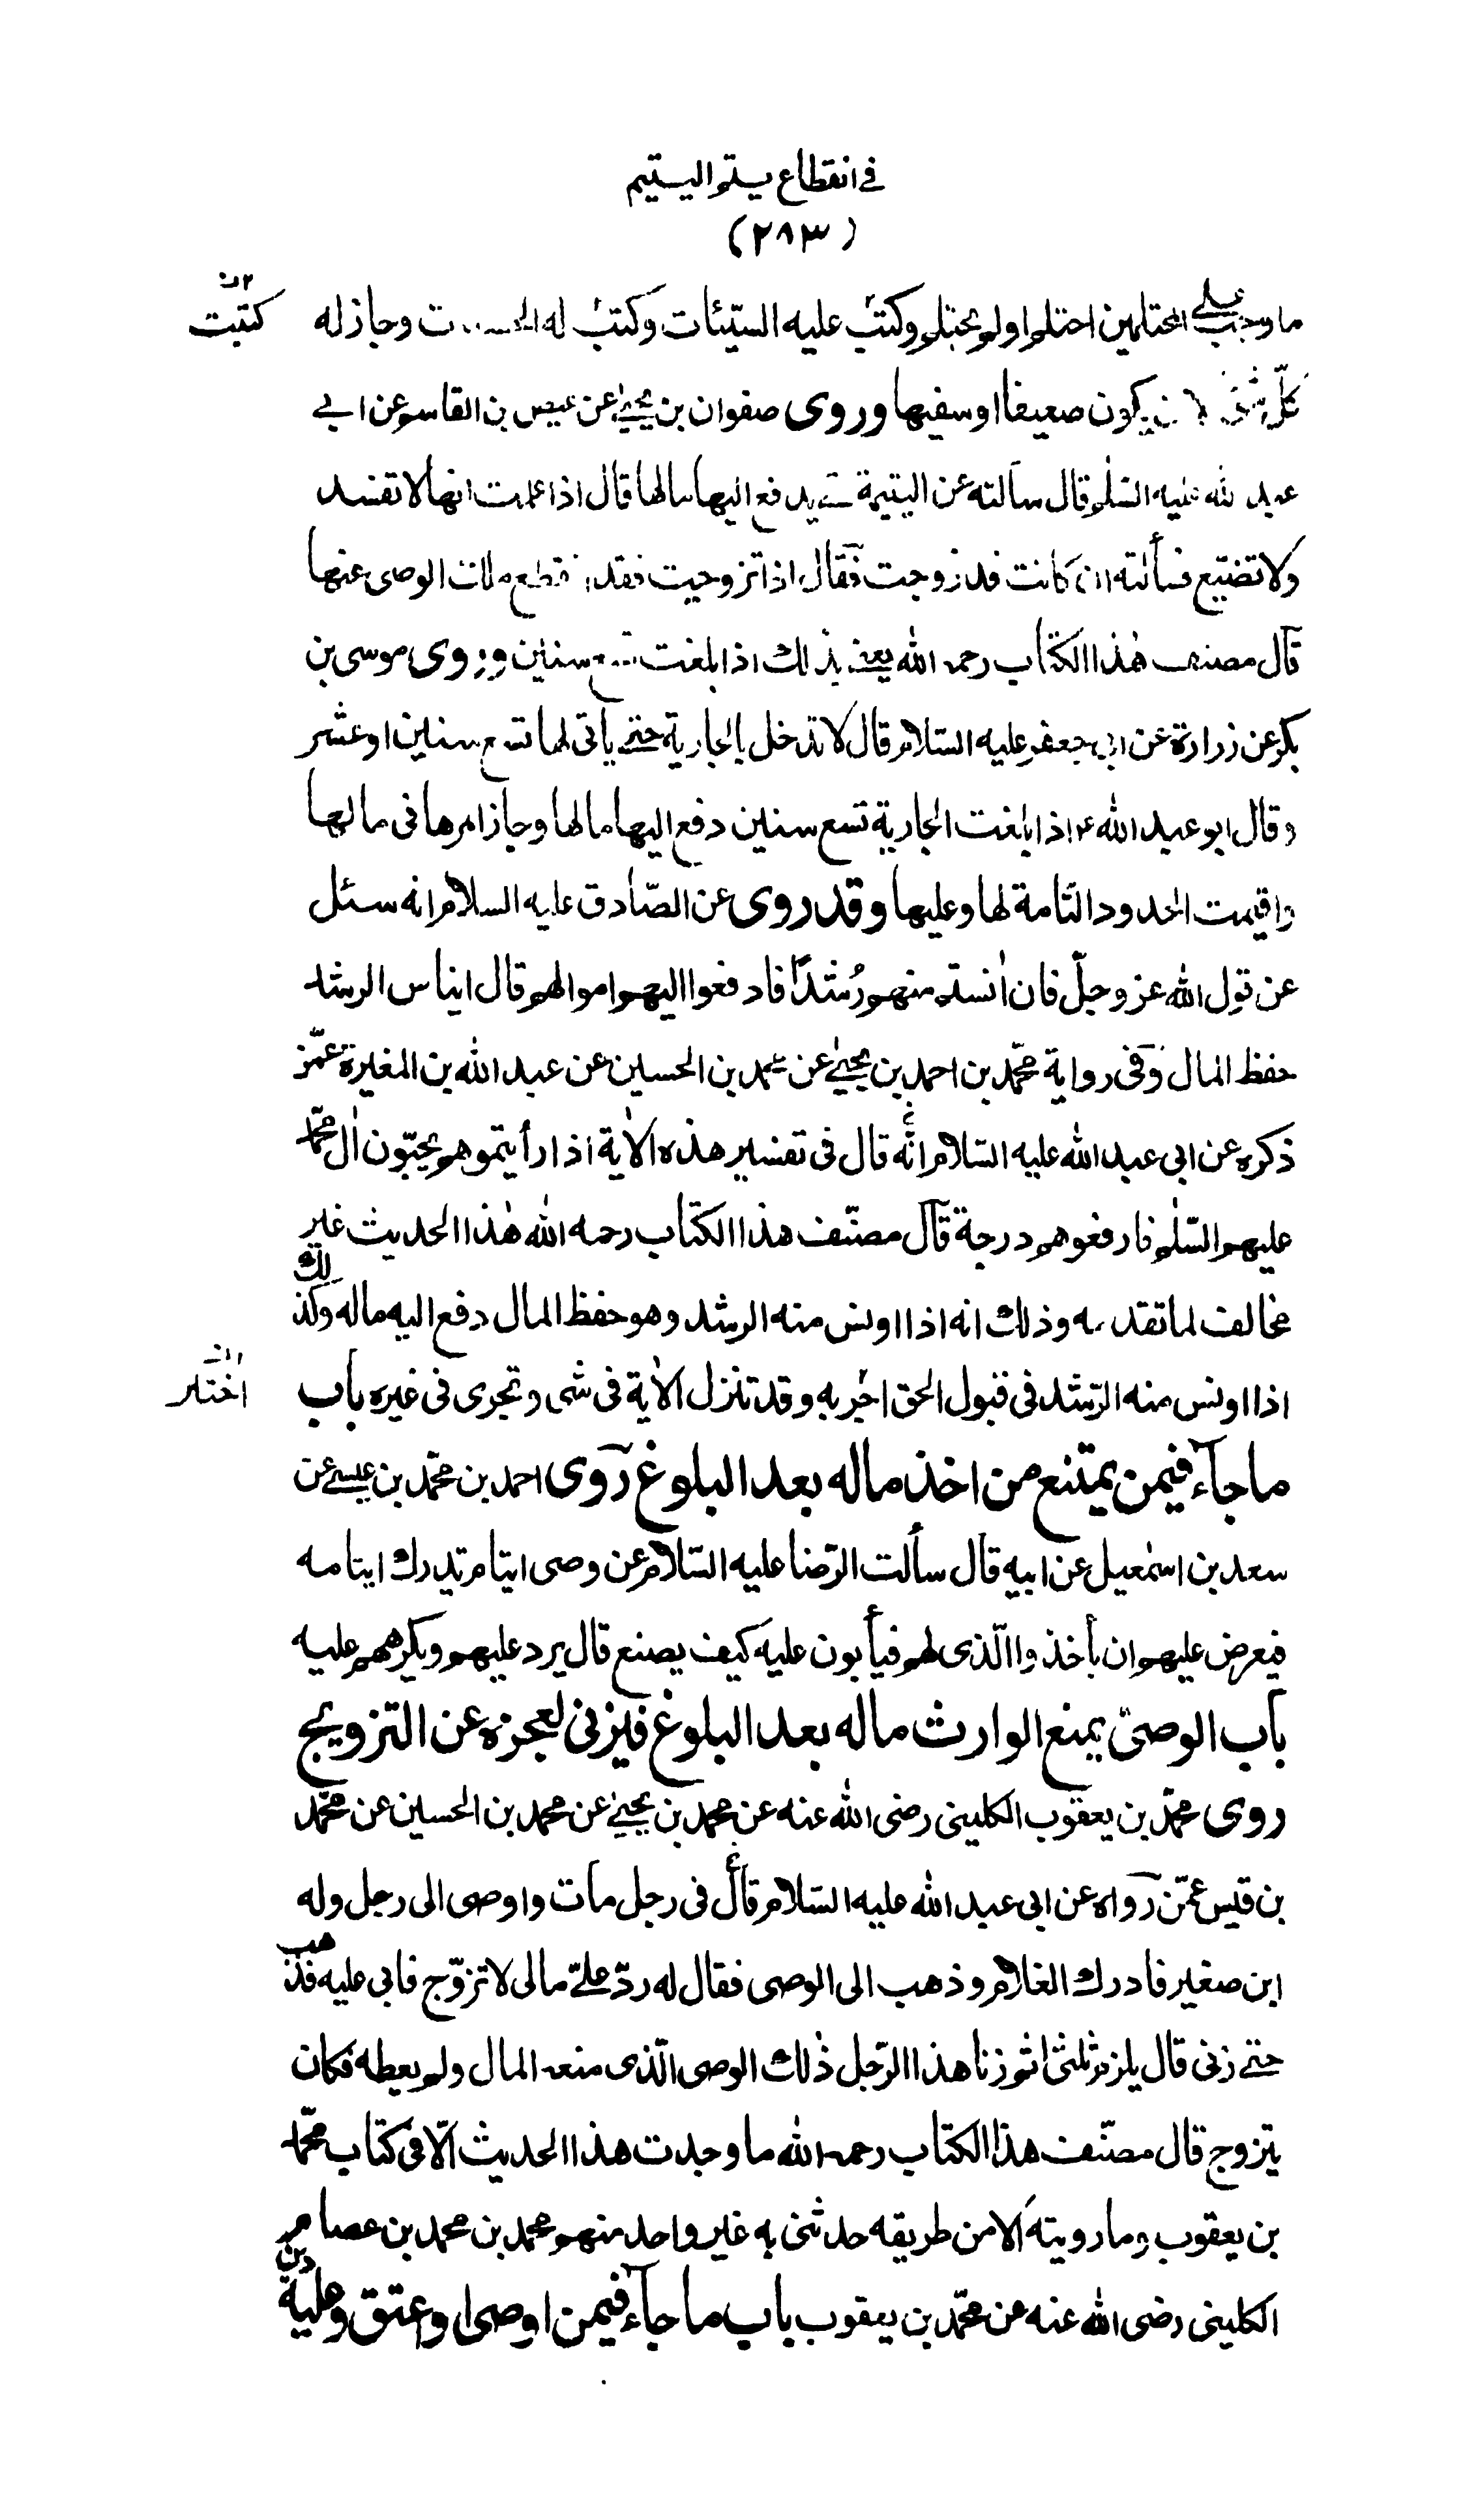 في انقطاع يتم اليتيم
(٢٨٣)
ما وجب على المحتلمين احتلم او لم يحتلم وكتب عليه السيّئات وكتب له وجاز له
كتبت
كلّ شئ يكون ضعيفا او سفيها وروى صفوان بن يحيى عن عيص بن القاسم عن ابي
عبد الله عليه السّلم قال سألته عن اليتيمة متى يدفع اليها مالها قال اذا علمت انها لا تفسد
ولا تضيّع فسألته ان كانت قد زوجت فقال اذا تزوجت فقد انقطع ملك الوصي عنها
قال مصنف هذا الكتاب رحمه الله يعنى بذلك اذا بلغت تسع سنين وروى موسى بن
بكر عن زرارة عن ابي جعفر عليه السّلام قال لا تدخل بالجارية حتى يأتي لها تسع سنين او عشر
وقال ابو عبد الله ع اذا بلغت الجارية تسع سنين دفع اليها مالها وجاز امرها في مالها
واقيمت الحدود التامة لها وعليها وقد روى عن الصّادق عليه السلام انه سئل
عن قول الله عز وجلّ فان اٰنستم منهم رُشدًا فادفعوا اليهم اموالهم قال ايناس الرشد
حفظ المال وفي رواية محمّد بن احمد بن يحيى عن محمد بن الحسين عن عبد الله بن المغيرة عمّن
ذكره عن ابي عبد الله عليه السّلام انّه قال في تفسير هذه الاٰية اذا رأيتموهم يحبّون اٰل محمّد
عليهم السّلٰم فارفعوهم درجة قال مصنّف هذا الكتاب رحمه الله هٰذا الحديث غير
مخالف لما تقدمه وذلك انه اذا اونس منه الرشد وهو حفظ المال دفع اليه ماله وكذلك
اذا اونس منه الرّشد في قبول الحق اختبر به وقد تنزل الاٰية في شئ وتجرى في غيره باب
اختبر
ما جآء فيمن يمتنع من اخذ ماله بعد البلوغ روى احمد بن محمّد بن عيسى عن
سعد بن اسمٰعيل عن ابيه قال سألت الرّضا عليه السّلام عن وصي ايتام تدرك ايتامه
فيعرض عليهم ان يأخذوا الّذى لهم فيأبون عليه كيف يصنع قال يرد عليهم ويكرههم عليه
باب الوصيّ يمنع الوارث ماله بعد البلوغ فيزنى لعجزه عن التزويج
روى محمّد بن يعقوب الكليني رضي الله عنه عن محمد بن يحيى عن محمد بن الحسين عن محمّد
بن قيس عمّن رواه عن ابي عبد الله عليه السّلام قال في رجل مات واوصى الى رجل وله
ابن صغير فادرك الغلام وذهب الى الوصي فقال له ردّ عليّ مالى لاتزوّج فابى عليه فذهب
حتى زنى قال يلزم ثلثى اثم زنا هذا الرّجل ذٰلك الوصي الّذى منعه المال ولم يعطه فكان
يتزوج قال مصنّف هذا الكتاب رحمه الله ما وجدت هذا الحديث الّا في كتاب محمّد
بن يعقوب وما رويته الا من طريقه حدثنى به غير واحد منهم محمد بن محمد بن عصام
الكليني رضي الله عنه عن محمّد بن يعقوب باب ما جآء فيمن اوصى او اعتق وعليه دين